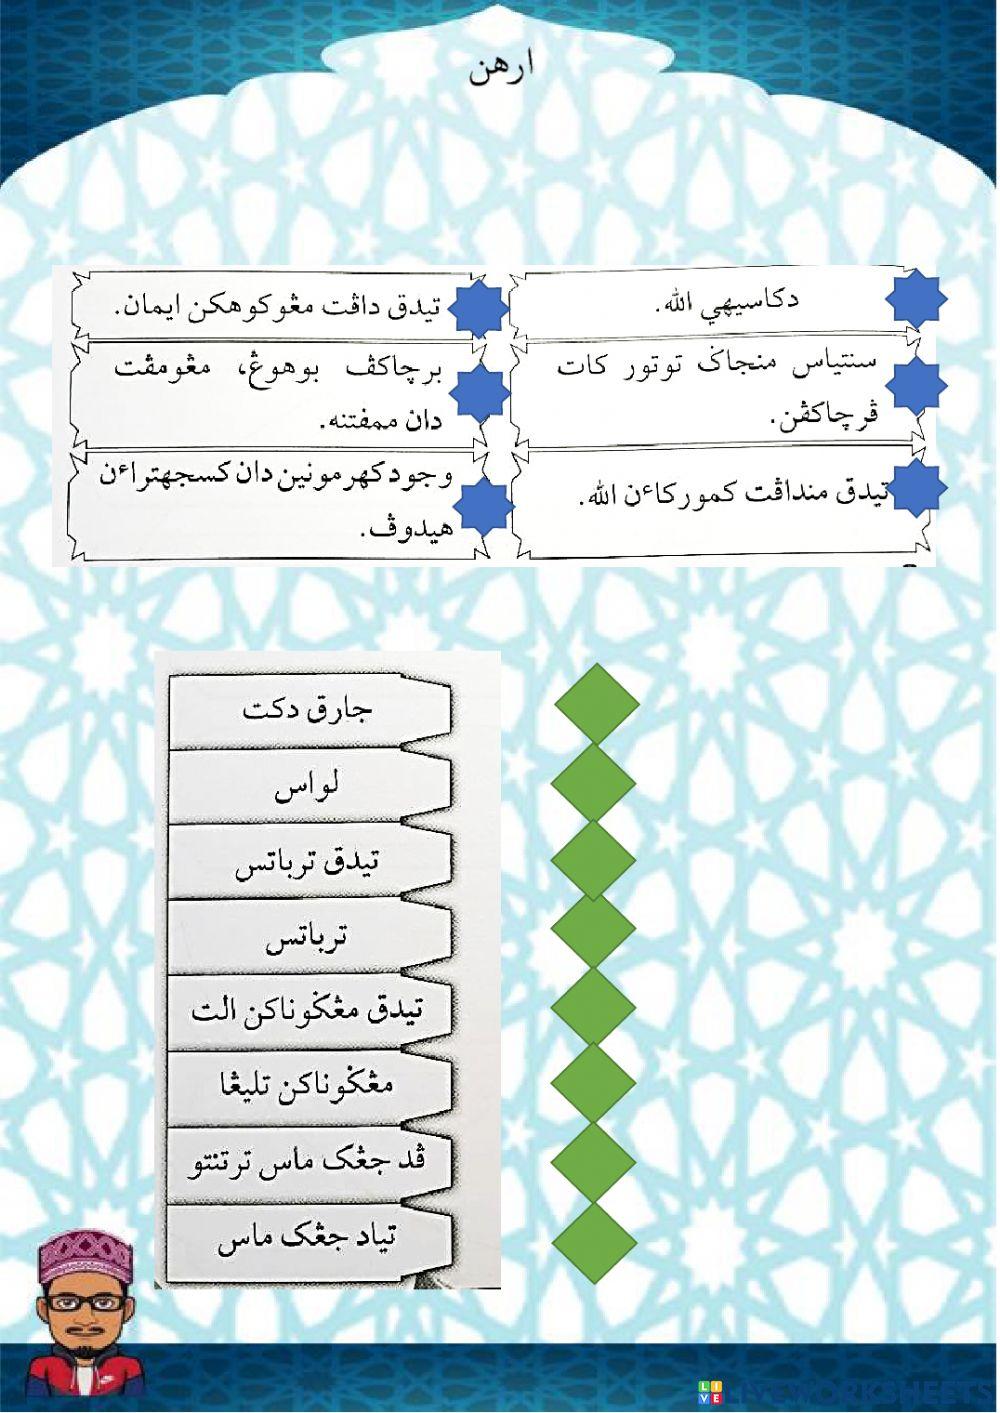 ارهن
دكاسيهي الله.
تيدق داڤت مڠوكوهكن ايمان.
سنتياس منجاݢ توتور كات
ڤرچاكڤن.
برچاكڤ بوهوڠ، مڠومڤت
دان ممفتنه.
تيدق منداڤت كموركاءن الله.
وجود كهرمونين دان كسجهتراءن
هيدوڤ.
جارق دكت
لواس
تيدق ترباتس
ترباتس
تيدق مڠݢوناكن الت
مڠݢوناكن تليڠا
ڤد جڠک ماس ترتنتو
تياد جڠک ماس
LIVEWORKSHEETS